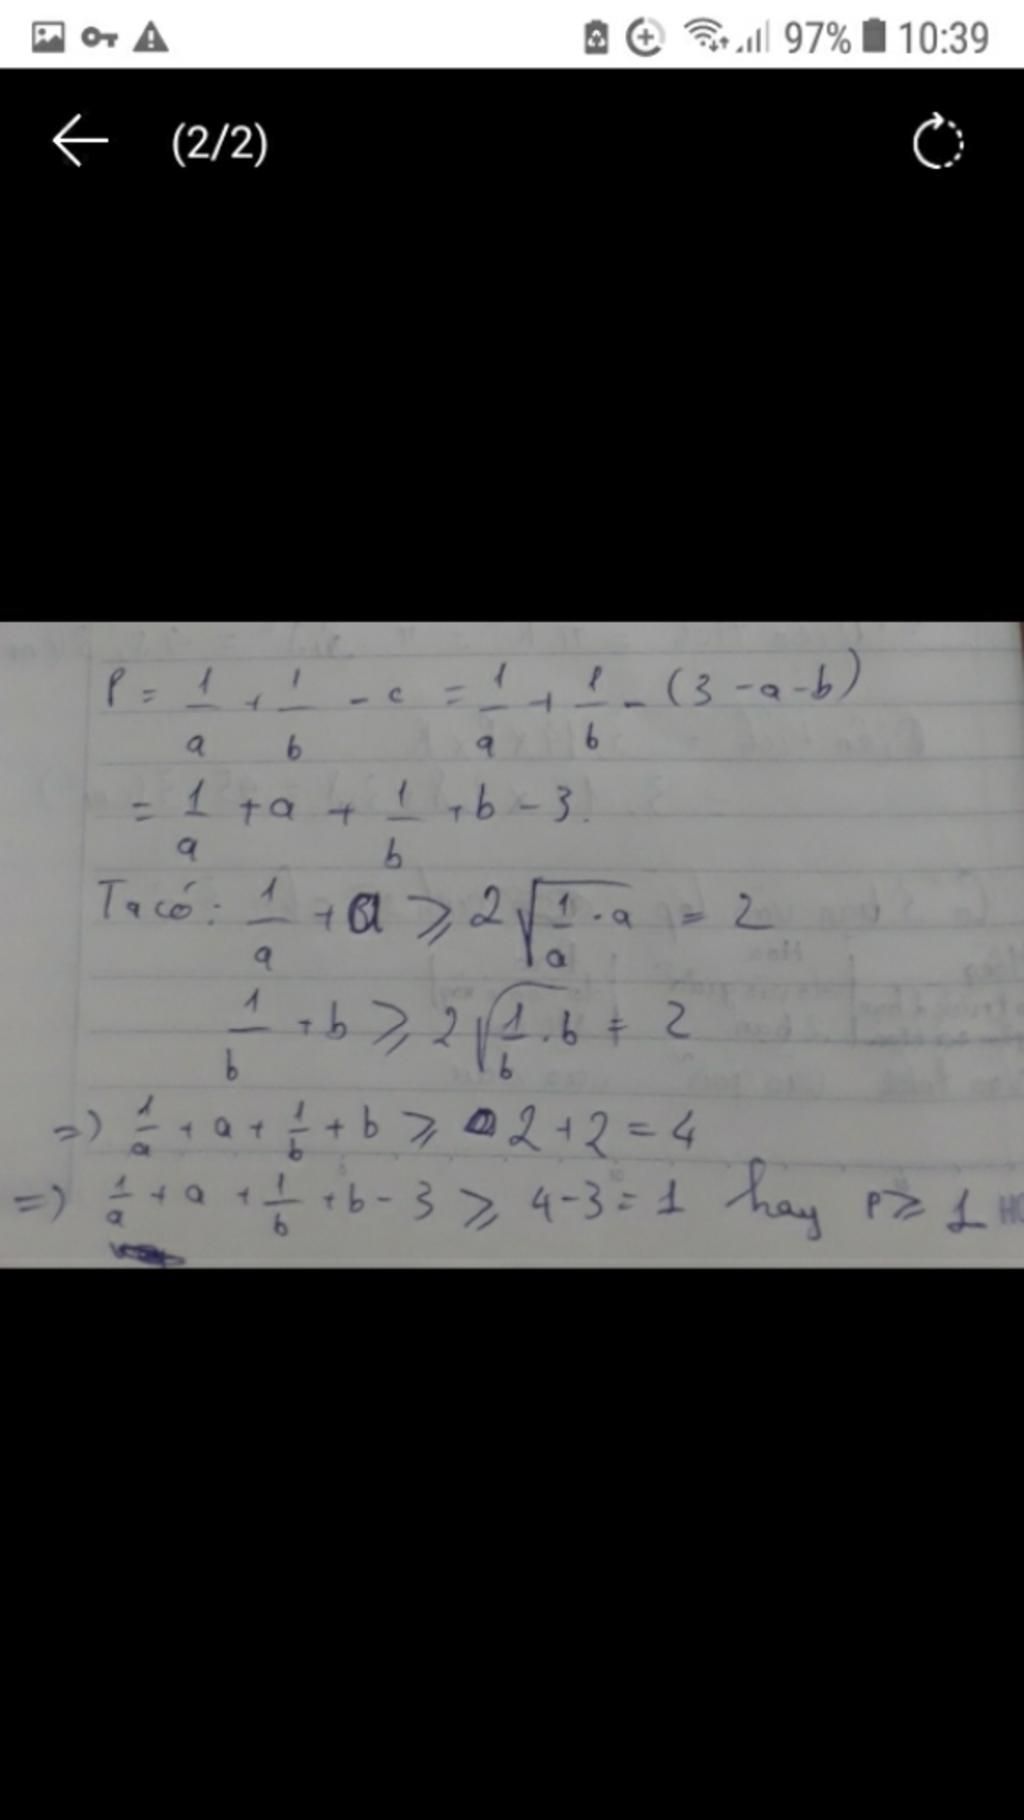 97% 10:39
(2/2)
P = 1/a + 1/b - c = 1/a + 1/b - (3 - a - b)
= 1/a + a + 1/b + b - 3.
Ta có: 1/a + a ⩾ 2√(1/a . a) = 2
1/b + b ⩾ 2√(1/b . b) = 2
=) 1/a + a + 1/b + b ⩾ 2 + 2 = 4
=) 1/a + a + 1/b + b - 3 ⩾ 4 - 3 = 1 hay P ⩾ 1